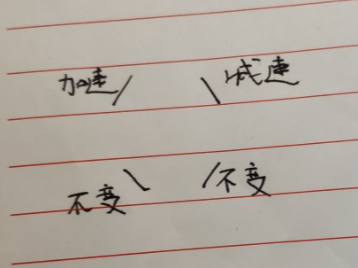 加速 减速
不变 不变